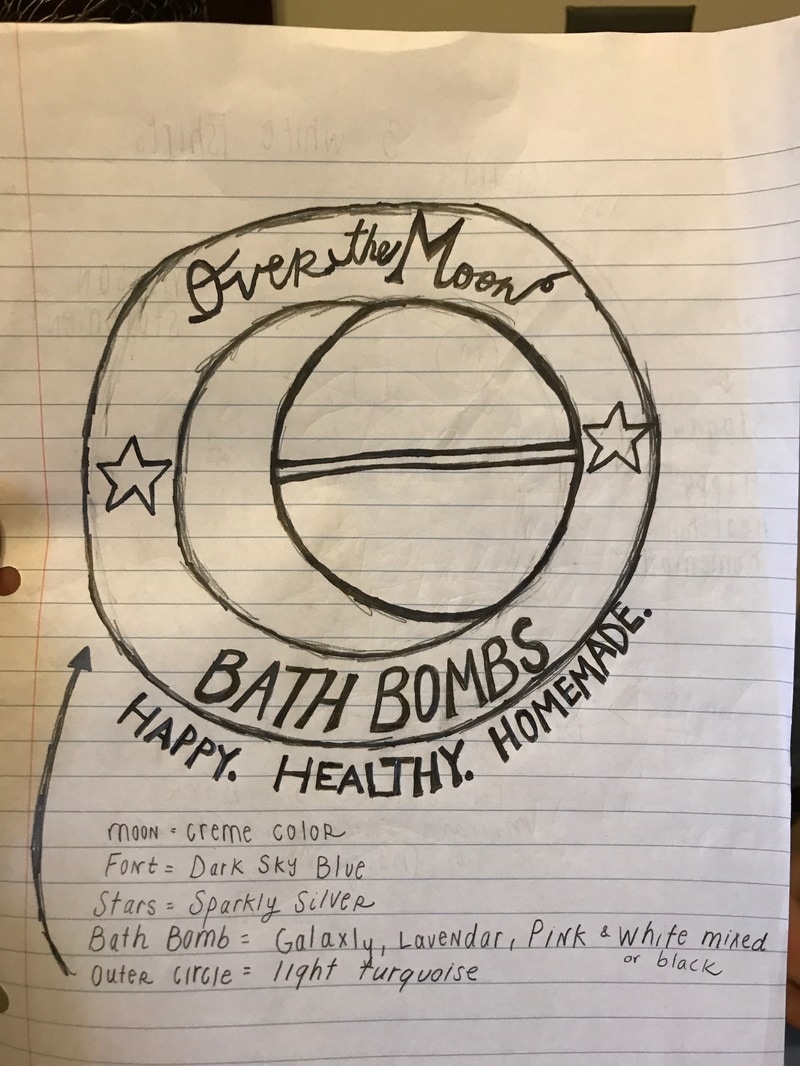 Over the Moon
BATH BOMBS
HAPPY. HEALTHY. HOMEMADE.
moon = creme color
Font = Dark Sky Blue
Stars = Sparkly Silver
Bath Bomb = Galaxly, Lavendar, Pink & white mixed
or black
outer circle = light turquoise
3 white tshirts